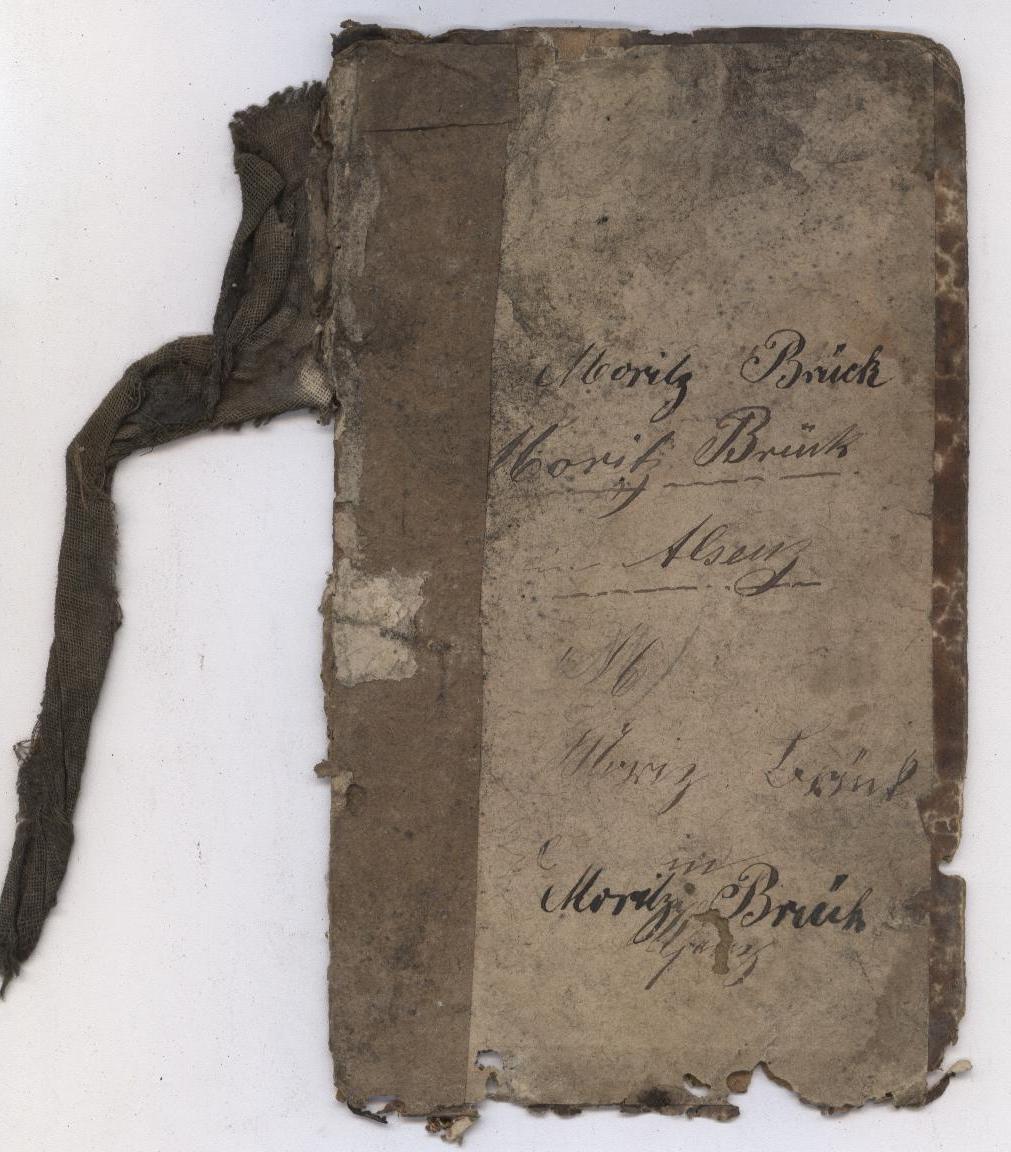 Moritz Brück
Moritz Brück
in Alsenz
M
Moriz Brück
in
Moritz Brück